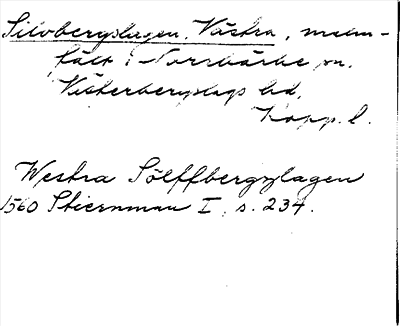 Silvbergslagen, Västra, malm-
fält i Norrbärke sn,
Västerbergslags hd,
Kopp. l.
Westra Sölffbergzlagen
1560 Stiernman I, s. 234.